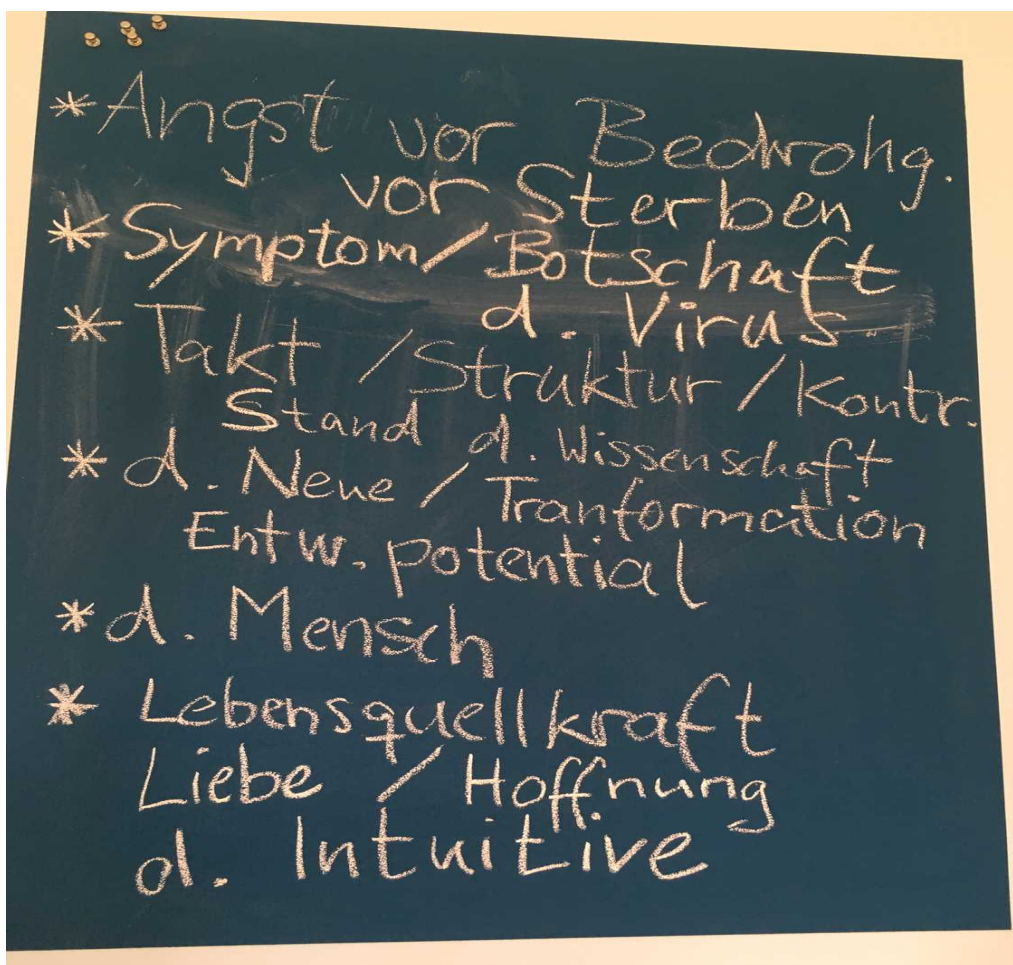 * Angst vor Bedrohg.
vor Sterben
* Symptom/Botschaft
d. Virus
* Takt / Struktur / Kontr.
Stand d. Wissenschaft
* d. Neue / Tranformation
Entw. potential
* d. Mensch
* Lebensquellkraft
Liebe / Hoffnung
d. Intuitive